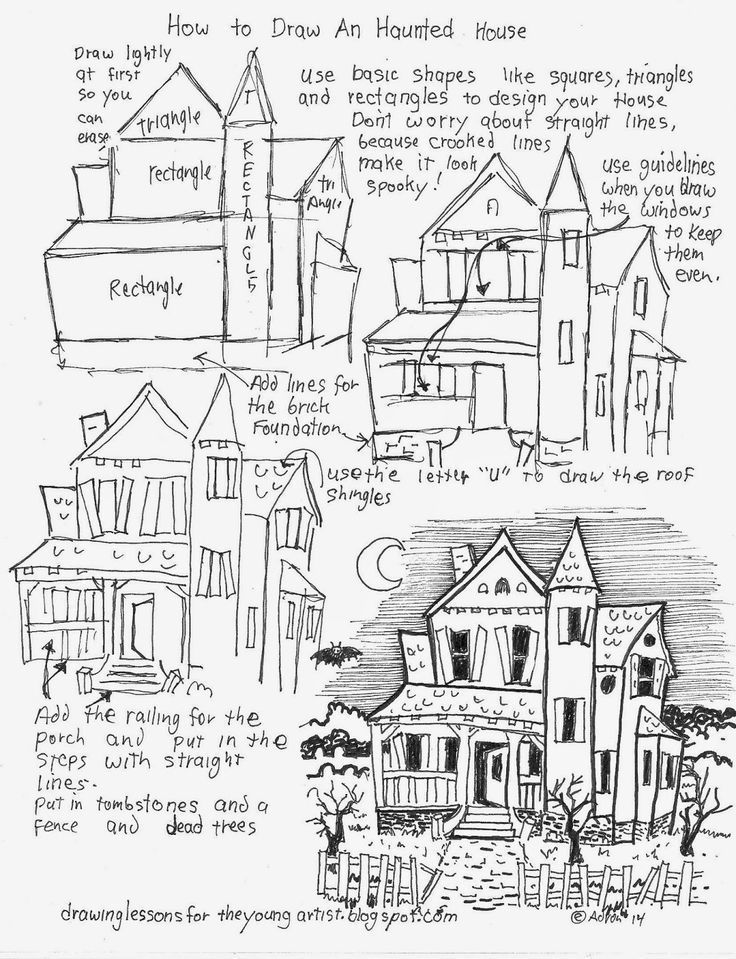 How to Draw An Haunted House
Draw lightly
at first
so you
can
erase
triangle
T
rectangle
RECTANGLE
tri
Angle
Rectangle
use basic shapes like squares, triangles
and rectangles to design your House
Dont worry about straight lines,
because crooked lines
make it look
spooky!
use guidelines
when you draw
the windows
to keep
them
even.
Add lines for
the brick
Foundation
use the letter "U" to draw the roof
shingles
Add the railing for the
porch and put in the
steps with straight
lines.
put in tombstones and a
fence and dead trees
drawinglessonsfortheyoungartist.blogspot.com
© Adron 14